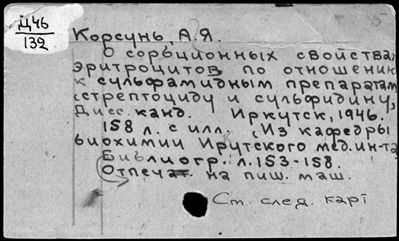 Д46
132
Корсунь, А.Я.
О сорбционных свойствах
эритроцитов по отношению
к сульфамидным препаратам
(стрептоциду и сульфидину).
Дисс. канд. Иркутск, 1946.
158 л. с илл. (Из кафедры
биохимии Ирутского мед.ин-та
Библиогр. л.153-158.
Отпечат на пиш. маш.
Ст. след. карт